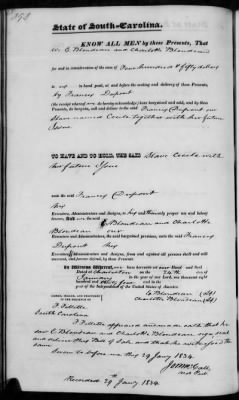 State of South-Carolina.
KNOW ALL MEN by these Presents, That
We C Blondeau and Charlotte Blondeau
for and in consideration of the sum of Four hundred & fifty dollars
to us in hand paid, at and before the sealing and delivery of these Presents,
by Francis Dupont
(the receipt whereof we do hereby acknowledge) have bargained and sold, and by these
Presents, do bargain, sell and deliver to the said Francis Dupont our
Slave named Cecile together with her future
Issue
TO HAVE AND TO HOLD, THE SAID Slave Cecile with
her future Issue
unto the said Francis Dupont
his
Executors, Administrators and Assigns, to his and their only proper use and behoof
forever. And we the said C Blondeau and Charlotte
Blondeau our
Executors and Administrators, the said bargained premises, unto the said Francis
Dupont his
Executors, Administrators and Assigns, from and against all persons shall and will
Warrant, and forever defend, by these Presents.
In Witness Whereof, we have hereunto set our Hand and Seal
Dated at Charleston on the 24th day of
January in the year of our Lord, one thousand eight
hundred and thirty four and in the
year of the Independence of the United States of America.
SIGNED, SEALED, AND DELIVERED
IN THE PRESENCE OF
C Blondeau (LS)
Charlotte Blondeau (LS)
South Carolina
appeared and made oath that he
saw C Blondeau and Charlotte Blondeau sign seal
and deliver this Bill of Sale and that he witnessed the
same
Sworn to before me this 29 Jany 1834.
Recorded 29th Jany 1834